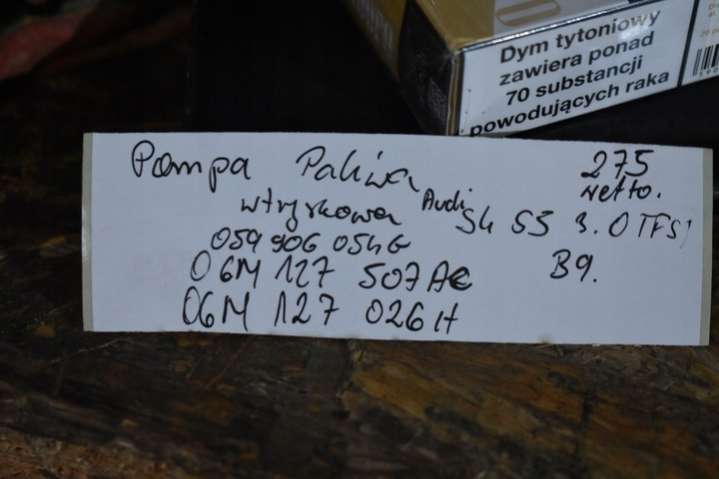 Dym tytoniowy
zawiera ponad
70 substancji
powodujących raka
Pompa Paliwa 275
netto.
wtryskowa Audi S4 S5 3.0 TFSI
059 906 054G
06M 127 507AE B9.
06M 127 026H